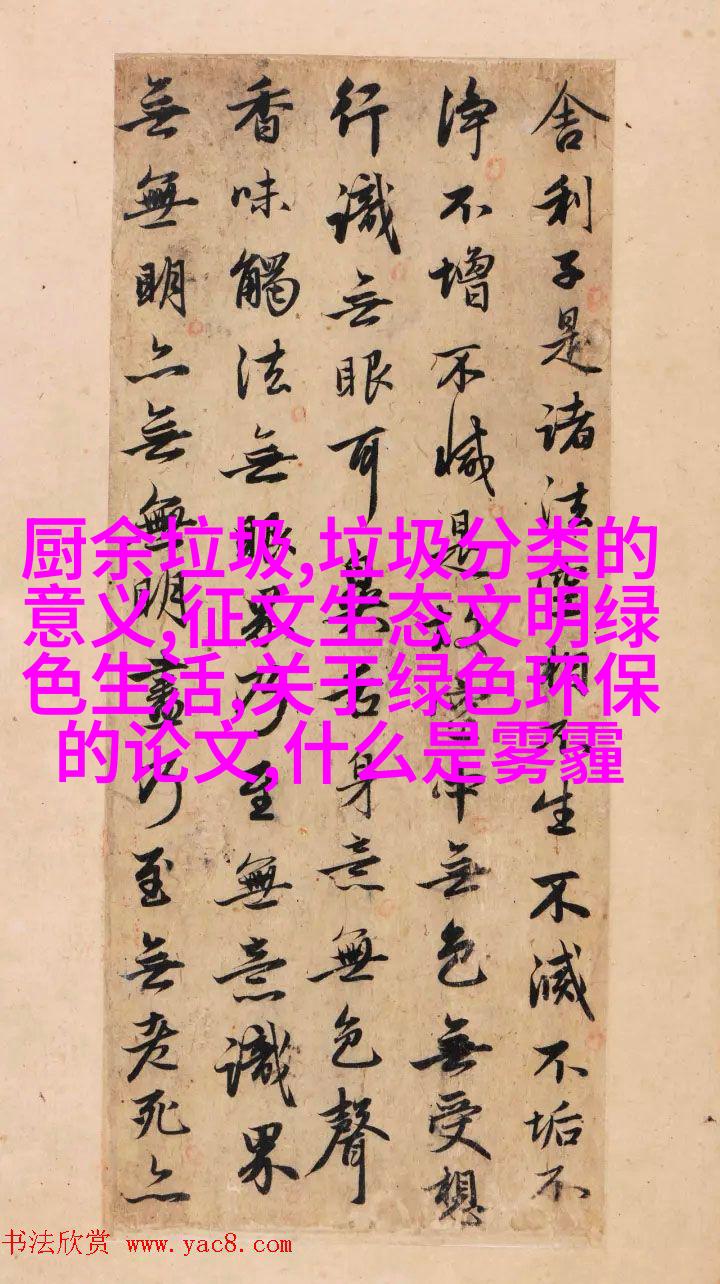 舍利子是諸法空相不生不滅不垢不
淨不增不減是故空中無色無受想
行識無眼耳鼻舌身意無色聲
香味觸法無眼界乃至無意識界
無無明亦無無明盡乃至無老死亦
厨余垃圾,垃圾分类的
意义,征文生态文明绿
色生活,关于绿色环保
的论文,什么是雾霾
书法欣赏 www.yac8.com